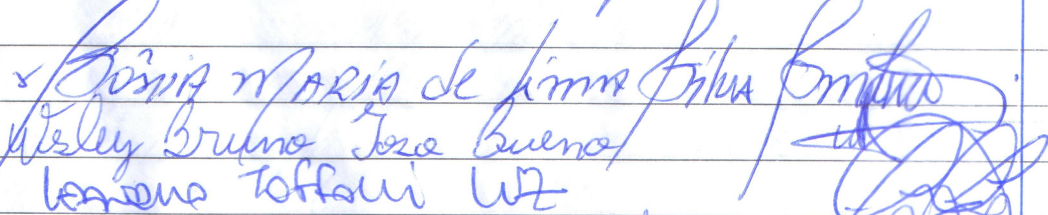 Sônia MARIA de Lima Silva
Wesley Bruno Jose Bueno
Leandro Toffani Luz